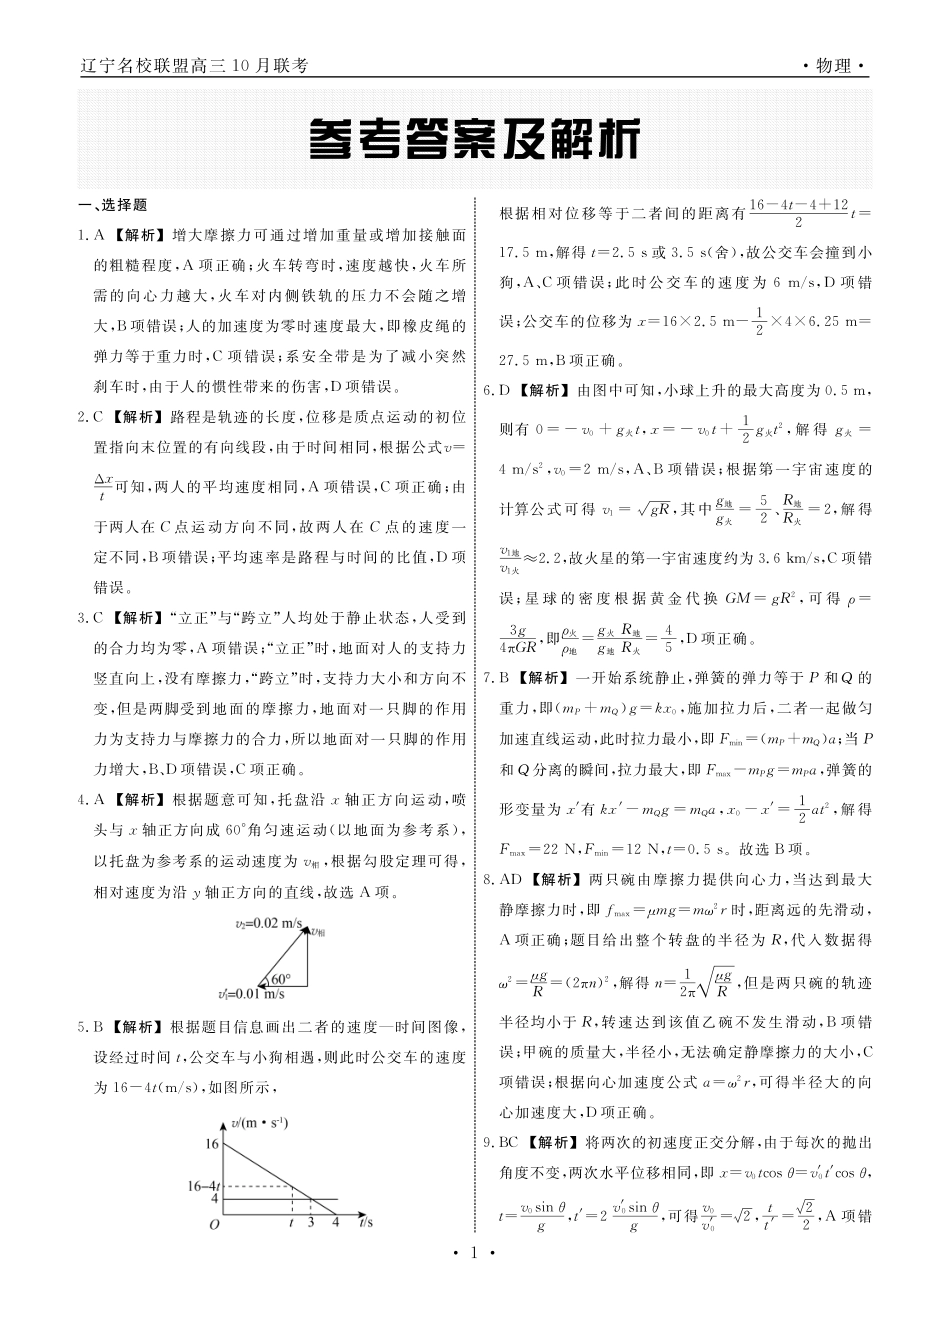 辽宁名校联盟高三 10 月联考
·物理·
参考答案及解析
一、选择题
1. A 【解析】增大摩擦力可通过增加重量或增加接触面
的粗糙程度,A 项正确;火车转弯时,速度越快,火车所
需的向心力越大,火车对内侧铁轨的压力不会随之增
大,B项错误;人的加速度为零时速度最大,即橡皮绳的
弹力等于重力时,C 项错误;系安全带是为了减小突然
刹车时,由于人的惯性带来的伤害,D项错误。
2. C 【解析】路程是轨迹的长度,位移是质点运动的初位
置指向末位置的有向线段,由于时间相同,根据公式v=
Δx/t 可知,两人的平均速度相同,A 项错误,C 项正确;由
于两人在 C 点运动方向不同,故两人在 C 点的速度一
定不同,B项错误;平均速率是路程与时间的比值,D 项
错误。
3. C 【解析】“立正”与“跨立”人均处于静止状态,人受到
的合力均为零,A 项错误;“立正”时,地面对人的支持力
竖直向上,没有摩擦力,“跨立”时,支持力大小和方向不
变,但是两脚受到地面的摩擦力,地面对一只脚的作用
力为支持力与摩擦力的合力,所以地面对一只脚的作用
力增大,B、D 项错误,C 项正确。
4. A 【解析】根据题意可知,托盘沿 x 轴正方向运动,喷
头与 x 轴正方向成 60°角匀速运动(以地面为参考系),
以托盘为参考系的运动速度为 v相,根据勾股定理可得,
相对速度为沿 y 轴正方向的直线,故选 A 项。
v₂=0.02 m/s
v相
60°
v₁′=0.01 m/s
5. B 【解析】根据题目信息画出二者的速度—时间图像,
设经过时间 t,公交车与小狗相遇,则此时公交车的速度
为 16－4t(m/s),如图所示,
v/(m·s⁻¹)
16
16–4t
4
O t 3 4 t/s
根据相对位移等于二者间的距离有 (16－4t－4＋12)/2 t=
17.5 m,解得 t=2.5 s 或 3.5 s(舍),故公交车会撞到小
狗,A、C 项错误;此时公交车的速度为 6 m/s,D 项错
误;公交车的位移为 x=16×2.5 m－1/2×4×6.25 m=
27.5 m,B 项正确。
6. D 【解析】由图中可知,小球上升的最大高度为 0.5 m,
则有 0=－v₀＋g火t,x=－v₀t＋1/2 g火t²,解得 g火=
4 m/s²,v₀=2 m/s,A、B 项错误;根据第一宇宙速度的
计算公式可得 v₁=√gR,其中 g地/g火=5/2、R地/R火=2,解得
v₁地/v₁火≈2.2,故火星的第一宇宙速度约为 3.6 km/s,C 项错
误;星球的密度根据黄金代换 GM=gR²,可得 ρ=
3g/4πGR,即 ρ火/ρ地=g火/g地 R地/R火=4/5,D 项正确。
7. B 【解析】一开始系统静止,弹簧的弹力等于 P 和 Q 的
重力,即(mP＋mQ)g=kx₀,施加拉力后,二者一起做匀
加速直线运动,此时拉力最小,即 Fmin=(mP＋mQ)a;当 P
和 Q 分离的瞬间,拉力最大,即 Fmax－mPg=mPa,弹簧的
形变量为 x′有 kx′－mQg=mQa,x₀－x′=1/2 at²,解得
Fmax=22 N,Fmin=12 N,t=0.5 s。故选 B 项。
8. AD 【解析】两只碗由摩擦力提供向心力,当达到最大
静摩擦力时,即 fmax=μmg=mω²r 时,距离远的先滑动,
A 项正确;题目给出整个转盘的半径为 R,代入数据得
ω²=μg/R=(2πn)²,解得 n=1/2π √(μg/R),但是两只碗的轨迹
半径均小于 R,转速达到该值乙碗不发生滑动,B 项错
误;甲碗的质量大,半径小,无法确定静摩擦力的大小,C
项错误;根据向心加速度公式 a=ω²r,可得半径大的向
心加速度大,D 项正确。
9. BC 【解析】将两次的初速度正交分解,由于每次的抛出
角度不变,两次水平位移相同,即 x=v₀tcos θ=v₀′t′cos θ,
t=v₀sin θ/g,t′=2 v₀′sin θ/g,可得 v₀/v₀′=√2,t/t′=√2/2,A 项错
· 1 ·